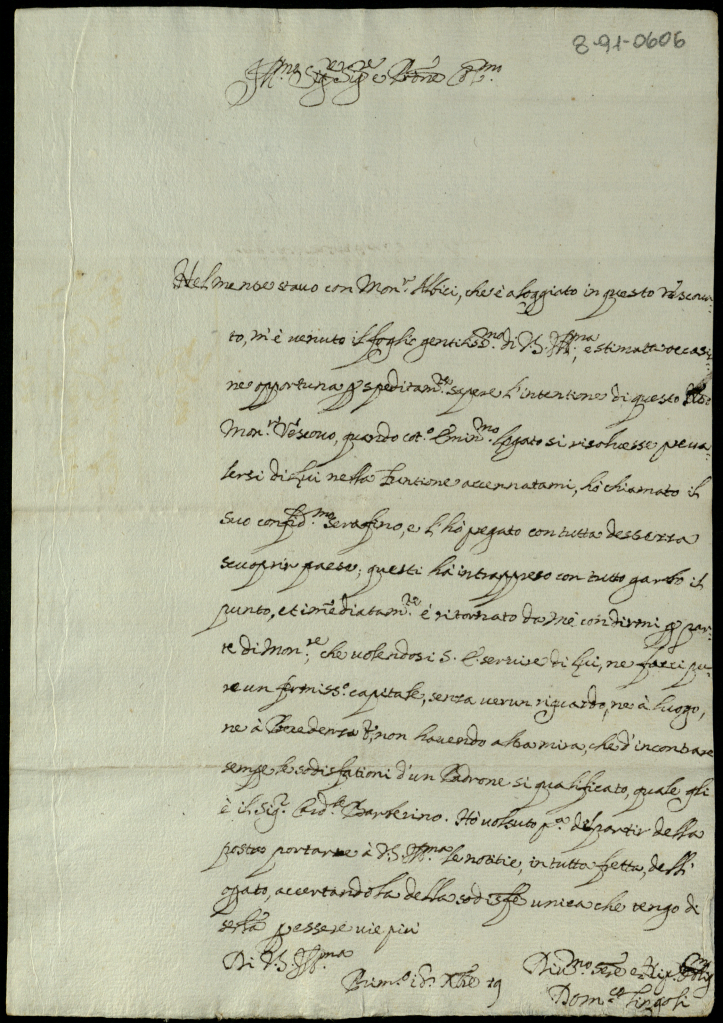 8-91-0606
Ill.mo Sig.re Sig.re e Prone Col.mo
Nel mentre stavo con Mon.r Albici, che è alloggiato in questo Vescova-
to, m'è venuto il foglio gentiliss.mo di V.S. Ill.ma, e stimata occasio-
ne opportuna p speditam.te sapere l'intentione di questo
Mon.r Vescovo, quando cot.o Emin.mo Legato si risolvesse preva-
lersi di Lui nella funtione accennatami, hò chiamato il
suo confid.mo Serafino, e l'hò pregato con tutta destrezza
scuoprir paese; questi hà intrappreso con tutto garbo il
punto, et imediatam.te è ritornato da mè con dirmi p par-
te di Mon.re, che volendosi S. E. servire di Lui, ne facci pu-
re un fermiss.o capitale, senza verun riguardo, ne à luogo,
ne à Precedenza &, non havendo altra mira, che d'incontrare
sempre le sodisfationi d'un Padrone si qualificato, quale gli
è il Sig.r Card.le Barberino. Hò voluto p.a del partir della
posta portarne à V.S. Ill.ma le notitie, in tutta fretta, dell'
opato, accertandola della sodisfne unica che tengo di
p essere vie più
Di V.S. Ill.ma
Rim.o id. Xbre 19
Div.mo et
Dom.co Lingoli